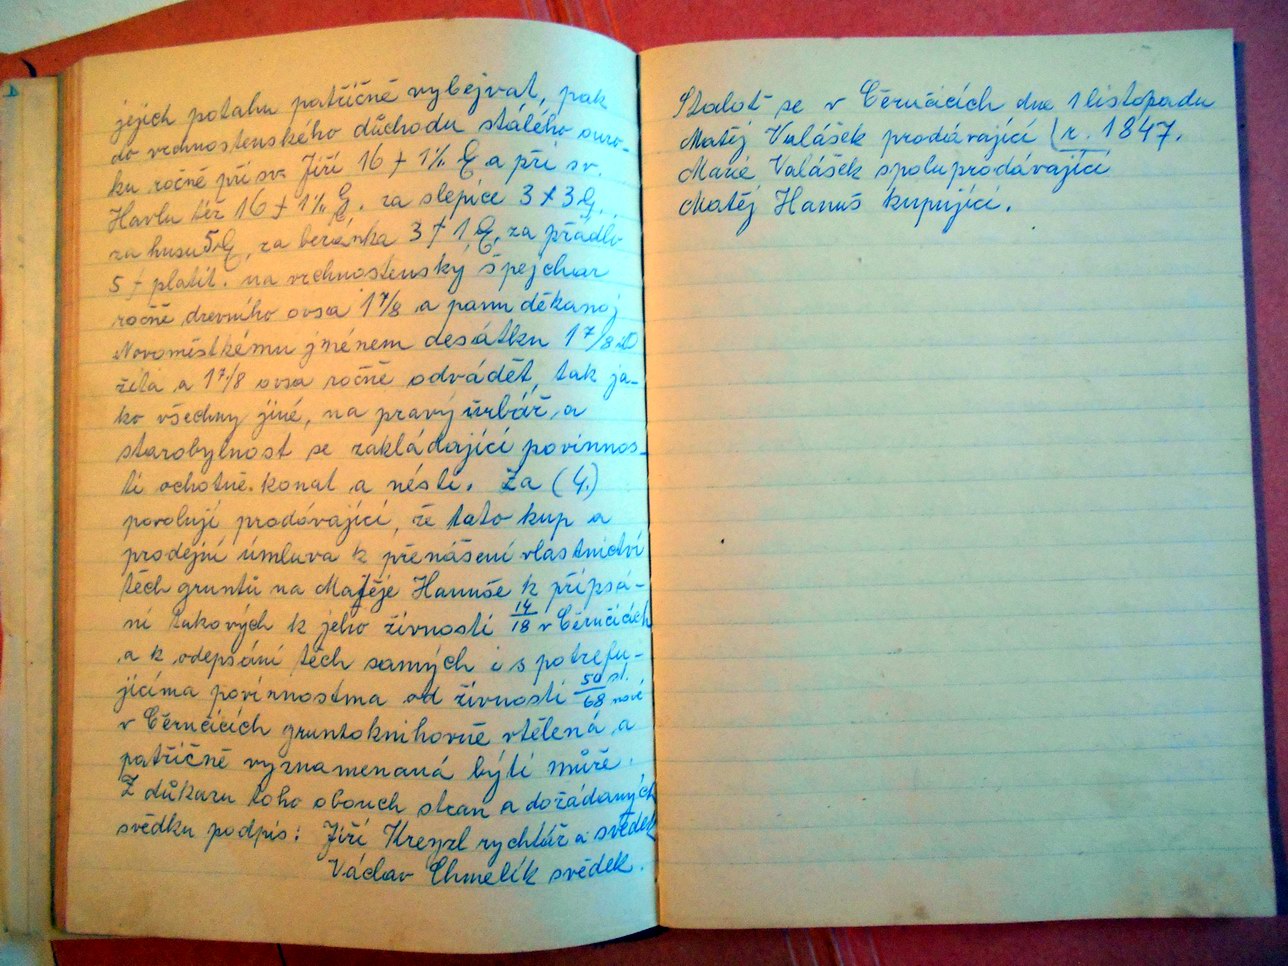 jejich potahu patřičně vybejvat, pak
do vrchnostenského důchodu stálého ouro-
ku ročně při sv. Jiří 16 f 1¼ q a při sv.
Havlu též 16 f 1¼ q. za slepice 3 f 3 q,
za husu 5 q, za beránka 3 f 1 q, za přádlo
5 f platit. na vrchnostenský špejchar
ročně drevního ovsa 1 7/8 a panu děkanoj
Novoměstkému jménem desátku 1 7/8
žita a 1 7/8 ovsa ročně odvádět, tak ja-
ko všechny jiné, na pravý urbář, a
starobylnost se zakládající povinnos-
ti ochotně konat a nésti. Za (4.)
povolují prodávající, že tato kup a
prodejní úmluva k přenášení vlastnictví
těch gruntů na Matěje Hanuše k připsá-
ní takových k jeho živnosti 14/18 v Čeručicích
a k odepsání těch samých i s potrefu-
jícíma povinnostma od živnosti 50 st./68 nové
v Čeručicích gruntoknihovně vtělená a
patřičně vyznamenaná býti může.
Z důkazu toho obouch stran a dožádaných
svědku podpis: Jiří Kreyzl rychtář a svědek
Václav Chmelík svědek.
Stalo se v Čeručicích dne 1 listopadu
Matěj Valášek prodávající (r. 1847.
Marie Valášek spoluprodávající
Matěj Hanuš kupující.